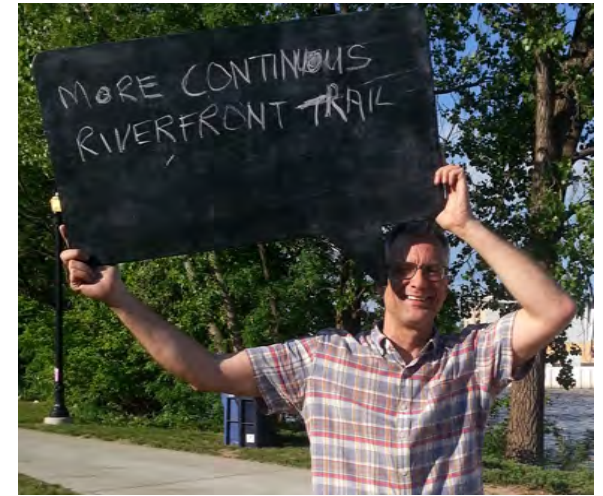 MORE CONTINUOUS
RIVERFRONT TRAIL